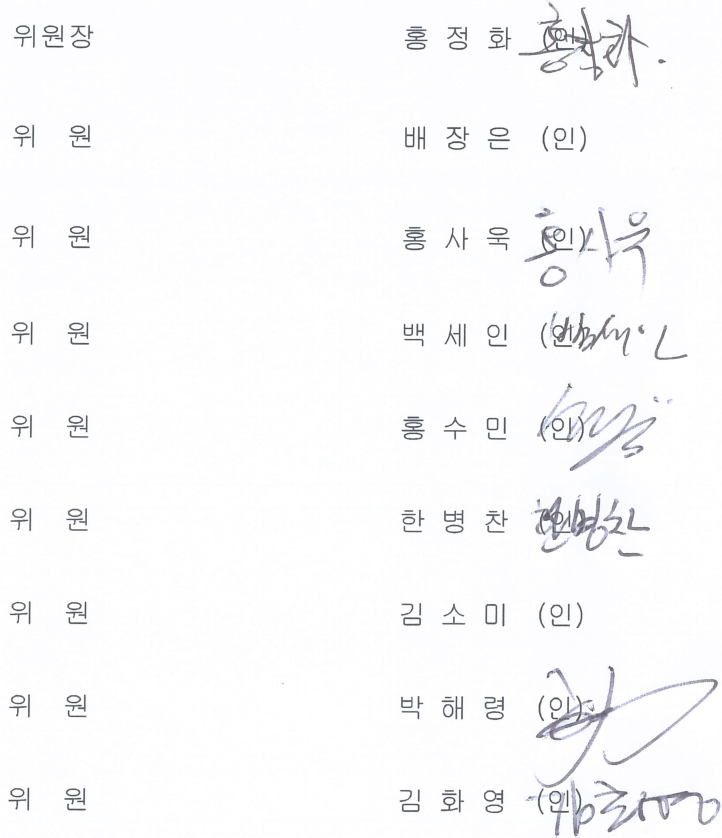 위원장 홍 정 화 (인) 홍정화
위 원 배 장 은 (인)
위 원 홍 사 욱 (인) 홍사욱
위 원 백 세 인 (인) 백세인
위 원 홍 수 민 (인)
위 원 한 병 찬 (인) 한병찬
위 원 김 소 미 (인)
위 원 박 해 령 (인)
위 원 김 화 영 (인) 김화영